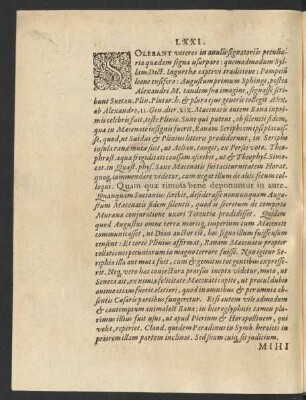 LXXI.
SOLEBANT veteres in anulis signatoriis peculia-
ria quædam signa usurpare: quemadmodum Syl-
lam Dict. Iugurthæ captivi traditione: Pompeiũ
leone ensifero: Augustum primum Sphinge, postea
Alexandri M. tandem sua imagine, signasse scri-
bunt Sueton. Plin. Plutar. & plura ejus generis collegit Alex.
ab Alexandro, 11. Gen. dier. XIX. Mæcenatis autem Rana inpri-
mis celebris fuit, teste Plinio. Sunt qui putent, ob silentii fidem,
qua in Mæcenate insignis fuerit, Ranam Seriphiam ipsi placuis-
se, quod, ut Suidas & Plinius literis prodiderunt, in Seripho
insula ranæ mutæ sint, ut Aelian. tangit, ex Persei voto. Theo-
phrast. aquæ frigiditati caussam ascribit, ut & Theophyl. Simo-
cat. in Quæst. phys. Hanc Mæcenatis taciturnitatem Horat.
quoque commendare videtur, cum negat illum de aliis secum col-
loqui: Quam quæ rimosa bene deponuntur in aure.
Quanquam Suetonius scribit, desiderasse nonnunquam Augu-
stum Mæcenatis fidem silentii, quod is secretum de comperta
Murenæ conjuratione uxori Terentiæ prodidisset. Quidem
quod Augustus omne terra marique imperium cum Mæcenate
communicasset, ut Dion author est, hoc signo illum fuisse usum
censent: Et certe Plinius affirmat, Ranam Mæcenatis propter
collationes pecuniarum in magno terrore fuisse. Non igitur Se-
riphia illa aut muta fuit, cum & genuit
expresse-
rit. Neque vero hæc conjectura prorsus inepta videtur, moto, ut
Seneca ait, ex nimia felicitate Mæcenatis capite, ut proculdubio
animo etiam fuerit elatiori, quod in omnibus & per omnia ab-
sentis Cæsaris partibus fungeretur. Etsi autem vile admodum
& contemptum animal est Rana: in hieroglyphicis tamen plu-
rimus illius fuit usus, ut apud Pierium & Horapollinem, qui
volet, reperiet. Claud. quidem Paradinus in Symb. heroicis in
priorem illam partem inclinat. Sed suum cuiq. sit judicium.
MIHI